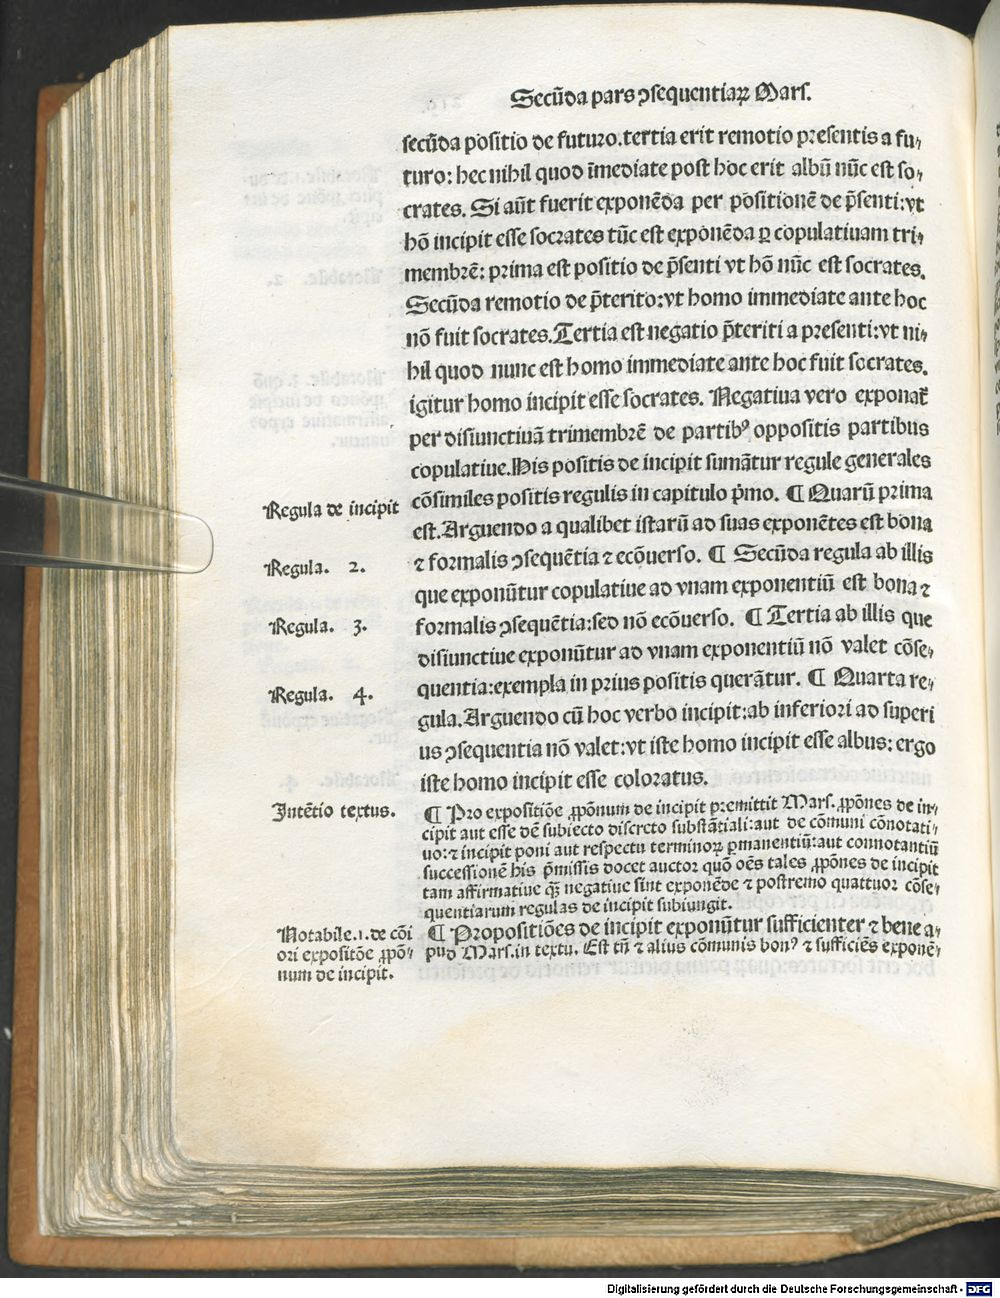 Secūda pars ↄsequentiaꝝ Mars.
secūda positio de futuro.tertia erit remotio presentis a fu⸗
turo: hec nihil quod īmediate post hoc erit albū nūc est so⸗
crates. Si aūt fuerit exponēda per positionē de p̄senti:vt
hō incipit esse socrates tūc est exponēda ꝑ copulatiuam tri⸗
membrē: prima est positio de p̄senti vt hō nūc est socrates.
Secūda remotio de p̄terito:vt homo immediate ante hoc
nō fuit socrates.Tertia est negatio p̄teriti a presenti:vt ni⸗
hil quod nunc est homo immediate ante hoc fuit socrates.
igitur homo incipit esse socrates. Negatiua vero exponat̄
per disiunctiuā trimembrē de partibꝰ oppositis partibus
copulatiue.His positis de incipit sumātur regule generales
cōsimiles positis regulis in capitulo p̄mo. ¶ Quarū prima
est.Arguendo a qualibet istarū ad suas exponētes est bona
⁊ formalis ↄsequētia ⁊ ecōuerso. ¶ Secūda regula ab illis
que exponūtur copulatiue ad vnam exponentiū est bona ⁊
formalis ↄsequētia:sed nō ecōuerso. ¶ Tertia ab illis que
disiunctiue exponūtur ad vnam exponentiū nō valet cōse⸗
quentia:exempla in prius positis querātur. ¶ Quarta re⸗
gula.Arguendo cū hoc verbo incipit:ab inferiori ad superi
us ↄsequentia nō valet:vt iste homo incipit esse albus: ergo
iste homo incipit esse coloratus.
Regula de incipit
Regula. 2.
Regula. 3.
Regula. 4.
Intētio textus.
¶ Pro expositiōe ꝓpōnum de incipit premittit Mars. ꝓpōnes de in⸗
cipit aut esse dē subiecto discreto substātiali:aut de cōmuni cōnotati⸗
uo:⁊ incipit poni aut respectu terminoꝝ ꝑmanentiū:aut connotantiū
successionē his p̄missis docet auctor quō oēs tales ꝓpōnes de incipit
tam affirmatiue qꝫ negatiue sint exponēde ⁊ postremo quattuor cōse⸗
quentiarum regulas de incipit subiungit.
Notabile.1.de cōi
ori expositōe ꝓpō⸗
num de incipit.
¶ Propositiōes de incipit exponūtur sufficienter ⁊ bene a⸗
pud Mars.in textu. Est tn̄ ⁊ alius cōmunis bonꝰ ⁊ sufficiēs exponē⸗
Digitalisierung gefördert durch die Deutsche Forschungsgemeinschaft - DFG